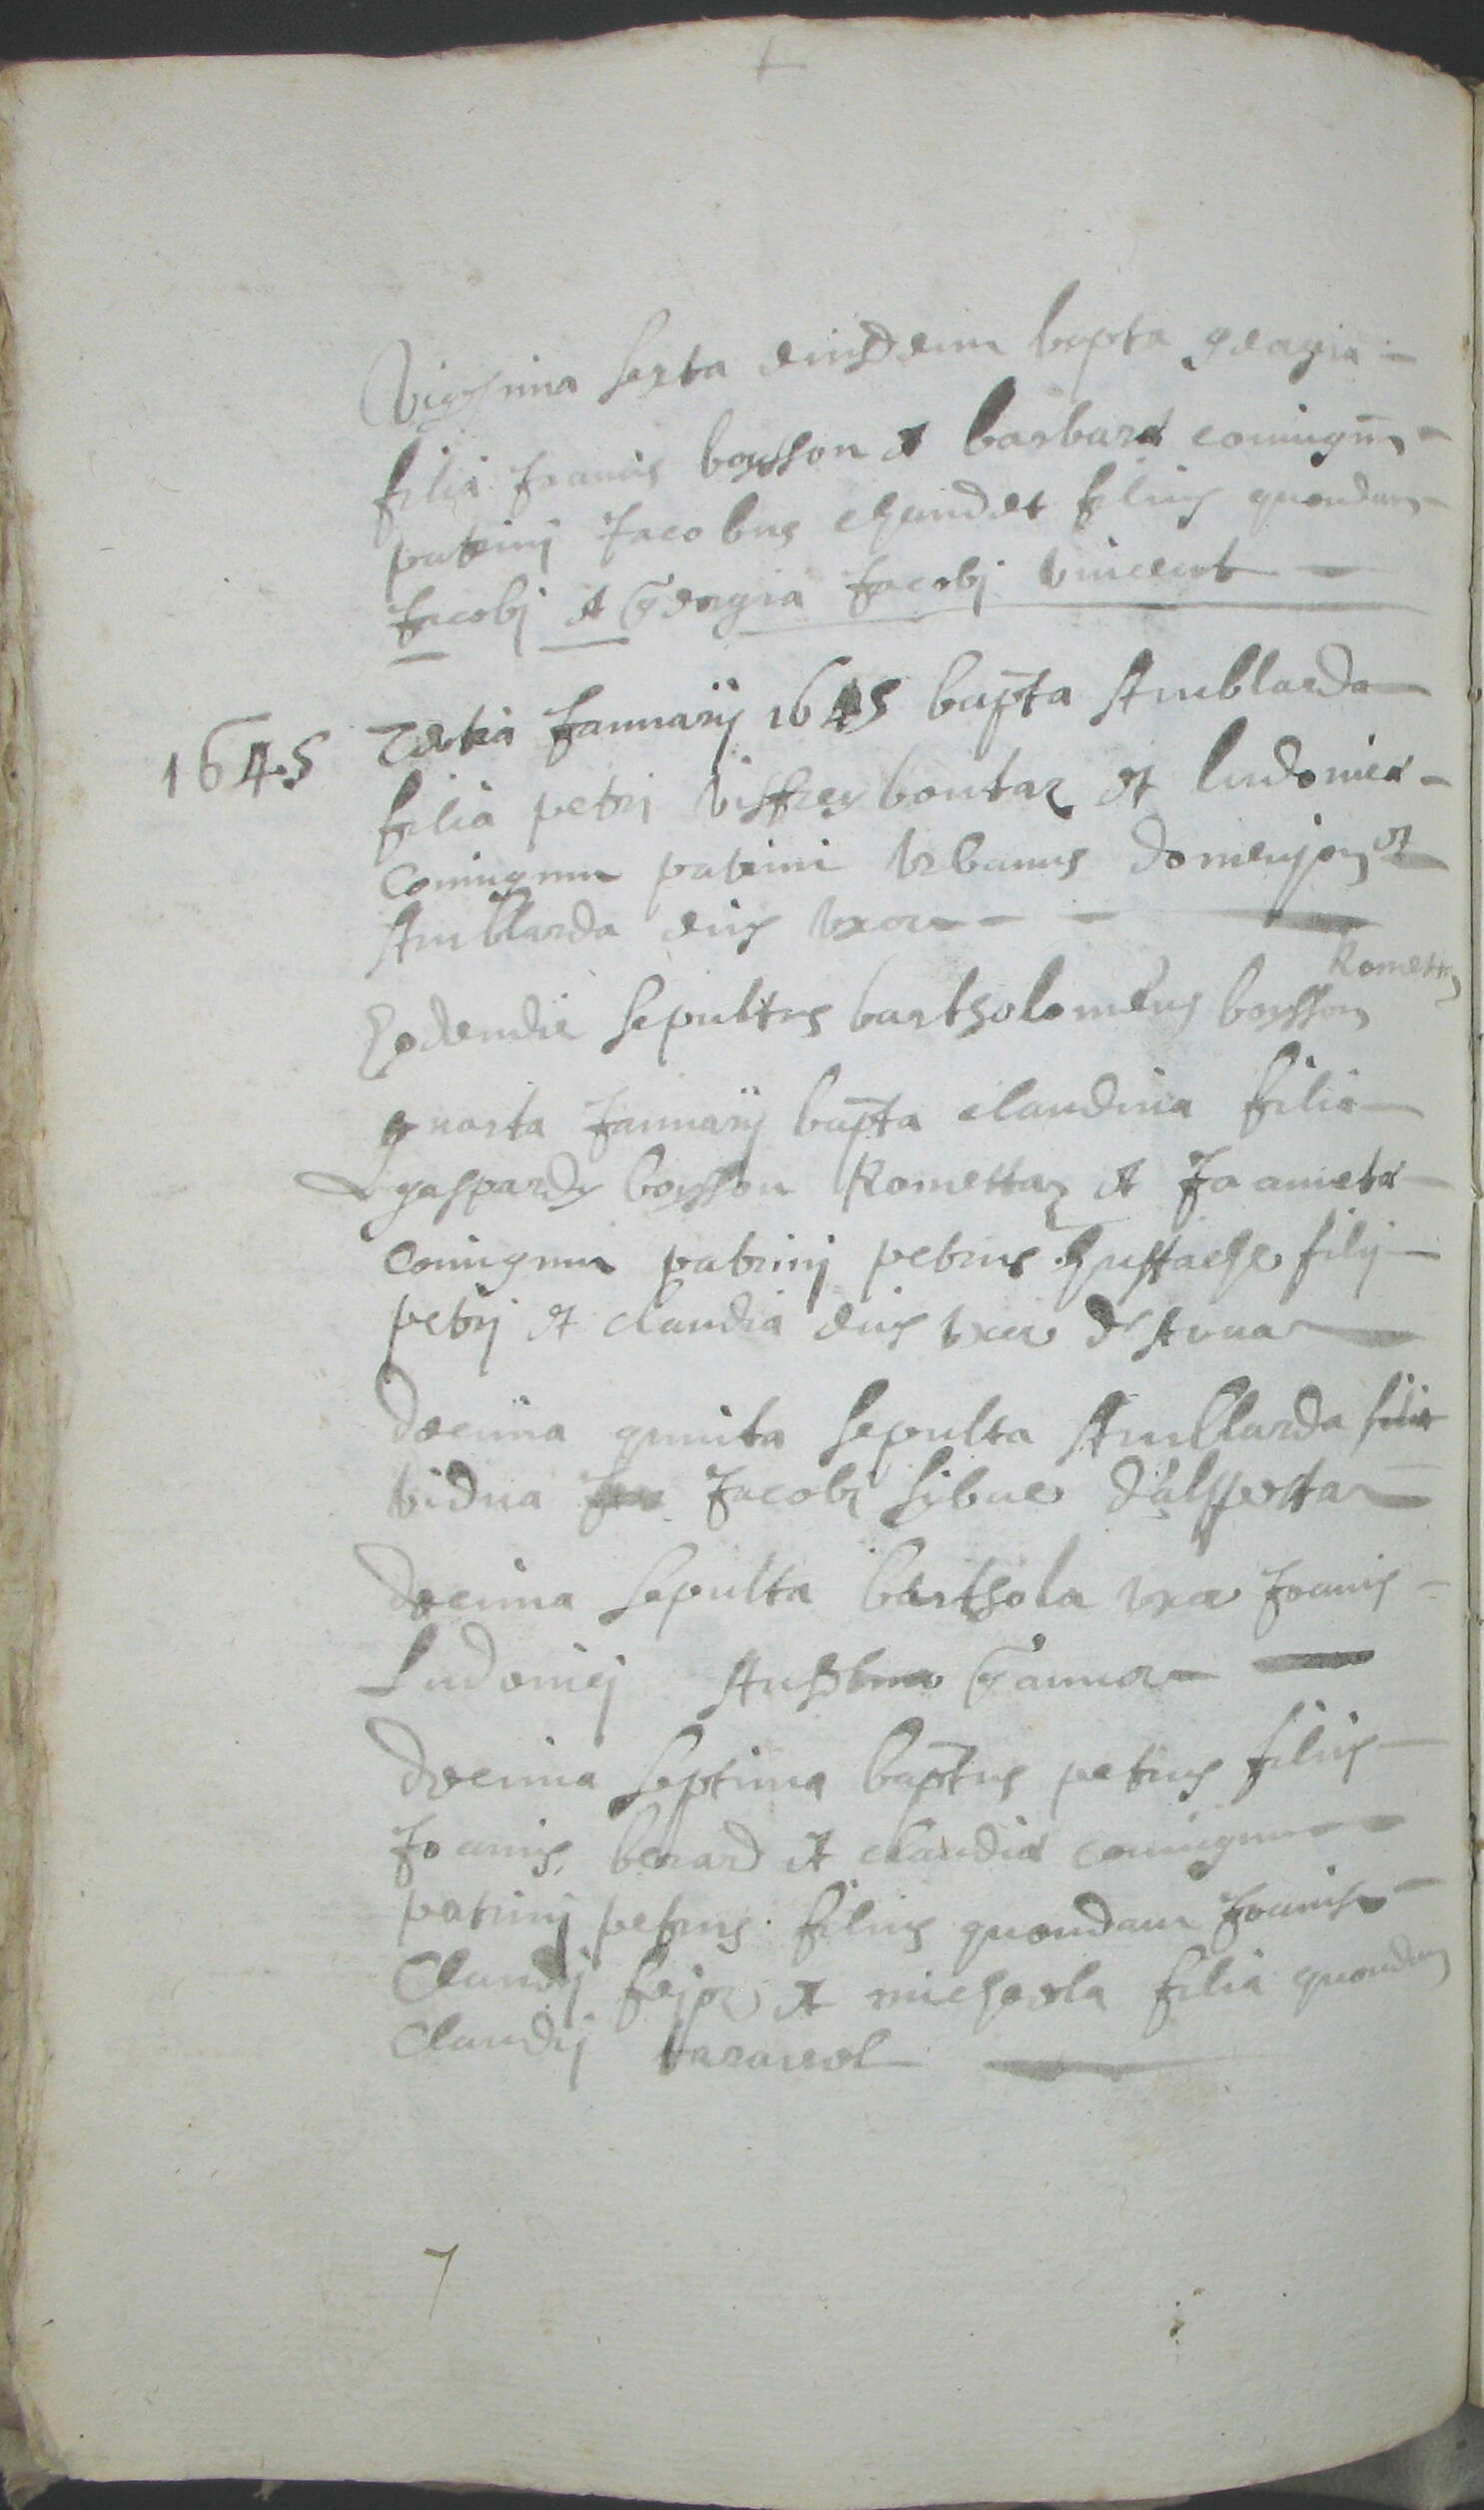 Vigesima sexta eiusdem bapta georgia
filia Joannis boysson et barbaræ coniugum
patrinj Jacobus chaudet filius quondam
Jacobj et Georgia Jacobj vincent
1645 Tertia Januarij 1645 bapta Amblarda
filia petrj viffrey boutaz et ludovicæ
Coniugum patrini Vrbanus domenjon et
Amblarda eius vxor
Eodem die sepultus bartholomeus boysson Romettaz
quarta Januarij bapta claudina filia
gaspardj boysson Romettaz et Joannetæ
Coniugum patrinj petrus Hustache filij
petrj et claudia eius vxor
decima quinta sepulta Amblarda filia
vidua Jacobj sibue
decima sepulta barthola vxor Joannis
Ludovicj
decima septima baptus petrus filius
Joannis berard et claudiæ coniugum
patrinj petrus filius quondam Joannis
Claudij et micheola filia quondam
Claudij taravel
7